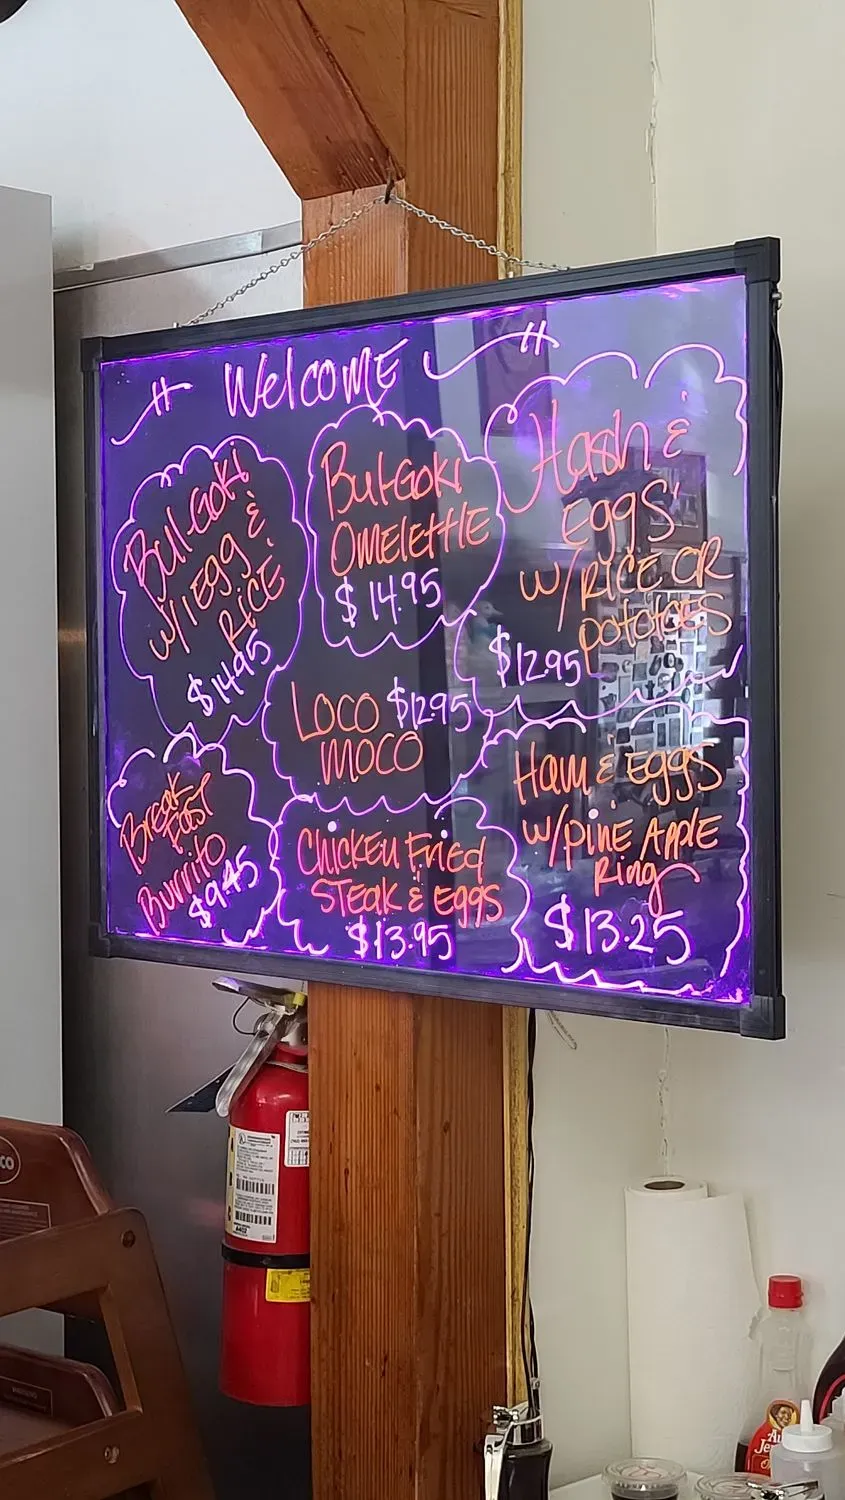 Welcome
Bul-Goki
w/ 1 Egg &
Rice
$14.95
Bul-Goki
Omelette
$14.95
Hash &
Eggs
w/ Rice or
potatoes
$12.95
Loco $12.95
Moco
Break
Fast
Burrito
$9.45
Chicken Fried
Steak & Eggs
$13.95
Ham & Eggs
w/ pine Apple
Ring
$13.25